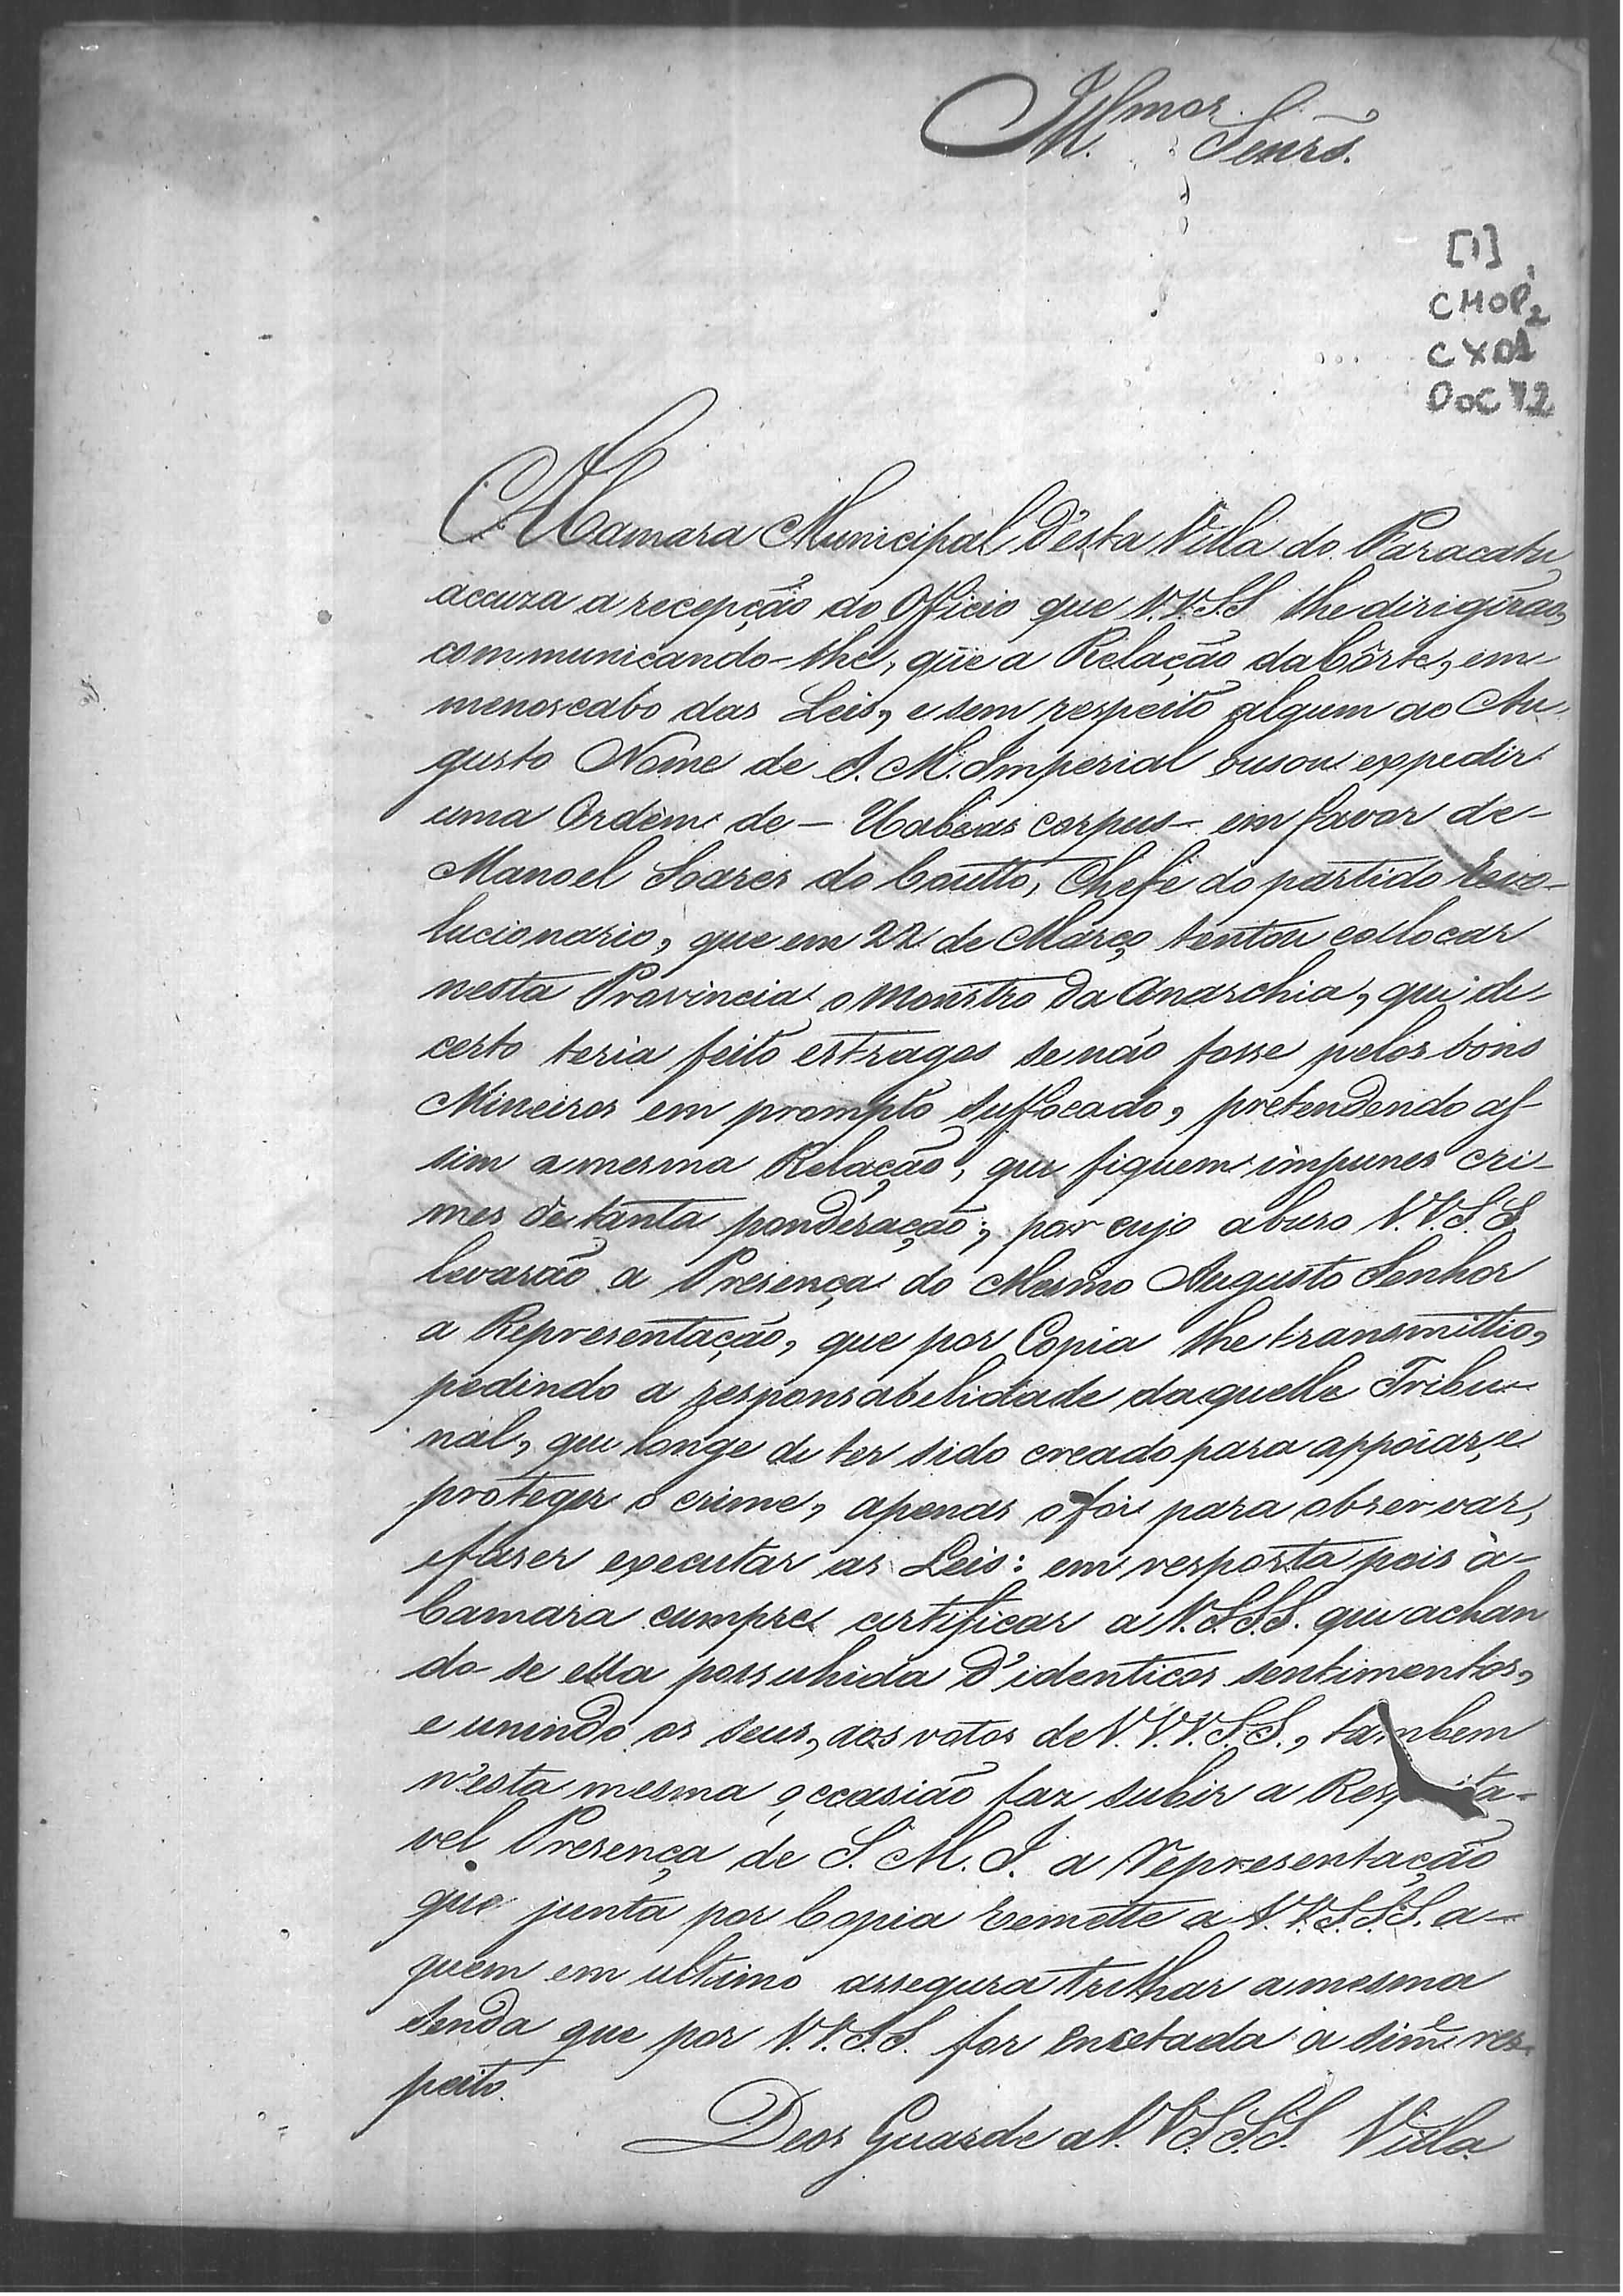 Illmos. Senrs.
[1]
CMOP2
CX01
DOC 12
A Camara Municipal d'esta Villa do Paracatu
accuza a recepção do Officio que V.V.S.S lhe dirigirão,
communicando-lhe, que a Relação da Côrte, em
menoscabo das Leis, e sem respeito algum ao Au
gusto Nome de S. M. Imperial ousou expedir
uma Ordem de - Habeas corpus - em favor de -
Manoel Soares do Coutto, Chefe do partido Revo-
lucionario, que em 22 de Março tentou collocar
nesta Provincia o monstro da Anarchia, que de
certo teria feito estragos se não fosse pelos bons
Mineiros em prompto suffocado, pretendendo as-
sim a mesma Relação, que fiquem impunes cri-
mes de tanta ponderação; por cujo abuso V.V.S.S
levarão a Presença do Mesmo Augusto Senhor
a Representação, que por Copia lhe transmittio,
pedindo a responsabelidade daquelle Tribu-
nal, que longe de ter sido creado para appoiar, e
proteger o crime, apenas o foi para observar,
e faser executar as Leis: em resposta pois a -
Camara cumpre certificar a V.S.S.S. que achan
do-se ella possuhida d'identicos sentimentos,
e unindo os seus, aos votos de V.V.V.S.S., tambem
n'esta mesma occasião faz subir a Resp ita-
vel Presença de S. M. I. a Representação
que junta por Copia remette a V.V.S.S.S. a -
quem em ultimo assegura trilhar a mesma
senda que por V.V.S.S. for encetada a sime res-
peito.
Deos Guarde a V. V.S.S.S. Villa